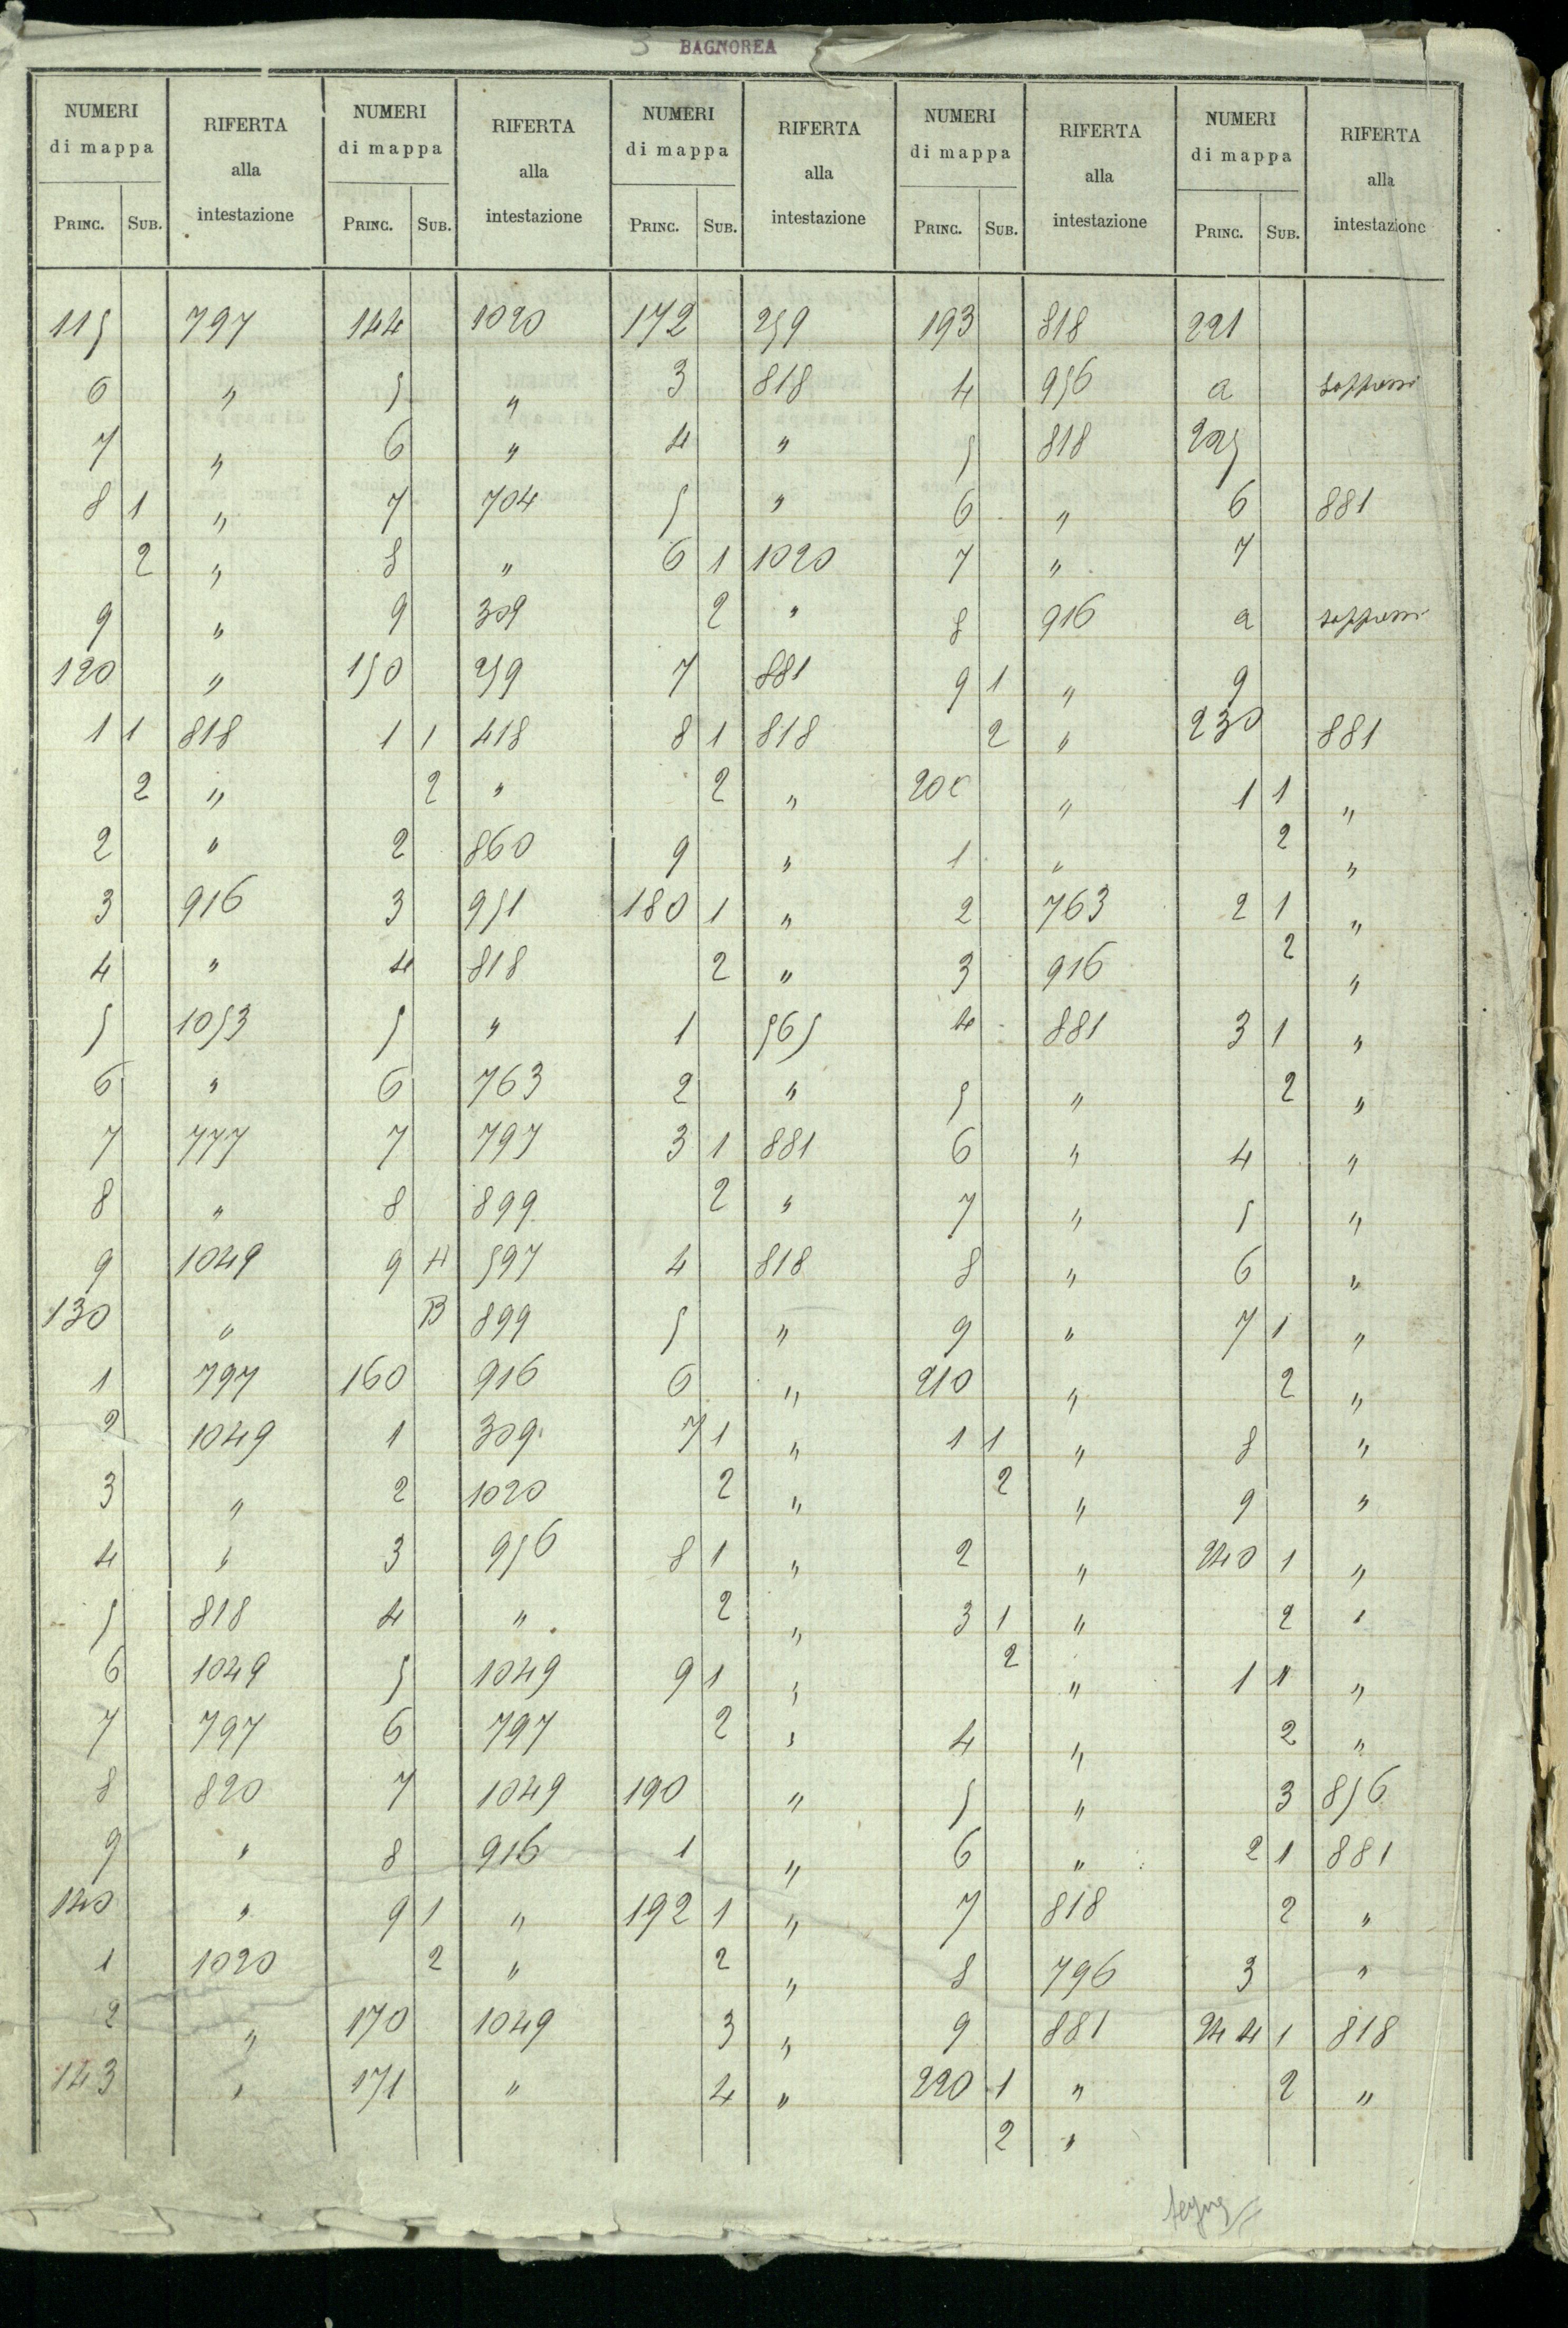 3 BAGNOREA
NUMERI di mappa | RIFERTA alla intestazione | NUMERI di mappa | RIFERTA alla intestazione | NUMERI di mappa | RIFERTA alla intestazione | NUMERI di mappa | RIFERTA alla intestazione | NUMERI di mappa | RIFERTA alla intestazione
PRINC. | SUB. | PRINC. | SUB. | PRINC. | SUB. | PRINC. | SUB. | PRINC. | SUB.
115 | | 797 | 144 | | 1020 | 172 | | 259 | 193 | | 818 | 221 | |
6 | | " | 5 | | " | 3 | | 818 | 4 | | 956 | a | | soppressi
7 | | " | 6 | | " | 4 | | " | 5 | | 818 | 225 | |
8 | 1 | " | 7 | | 704 | 5 | | " | 6 | | " | 6 | | 881
| 2 | " | 8 | | " | 6 | 1 | 1020 | 7 | | " | 7 | |
9 | | " | 9 | | 309 | | 2 | " | 8 | | 916 | a | | soppressi
120 | | " | 150 | | 259 | 7 | | 881 | 9 | 1 | " | 9 | |
1 | 1 | 818 | 1 | 1 | 418 | 8 | 1 | 818 | | 2 | " | 230 | | 881
| 2 | " | | 2 | " | | 2 | " | 200 | | " | 1 | 1 | "
2 | | " | 2 | | 860 | 9 | | " | 1 | | " | | 2 | "
3 | | 916 | 3 | | 951 | 180 | 1 | " | 2 | | 763 | 2 | 1 | "
4 | | " | 4 | | 818 | | 2 | " | 3 | | 916 | | 2 | "
5 | | 1053 | 5 | | " | 1 | | 565 | 4 | | 881 | 3 | 1 | "
6 | | " | 6 | | 763 | 2 | | " | 5 | | " | | 2 | "
7 | | 777 | 7 | | 797 | 3 | 1 | 881 | 6 | | " | 4 | | "
8 | | " | 8 | | 899 | | 2 | " | 7 | | " | 5 | | "
9 | | 1049 | 9 | A | 597 | 4 | | 818 | 8 | | " | 6 | | "
130 | | " | | B | 899 | 5 | | " | 9 | | " | 7 | 1 | "
1 | | 797 | 160 | | 916 | 6 | | " | 210 | | " | | 2 | "
2 | | 1049 | 1 | | 309 | 7 | 1 | " | 1 | 1 | " | 8 | | "
3 | | " | 2 | | 1020 | | 2 | " | | 2 | " | 9 | | "
4 | | " | 3 | | 956 | 8 | 1 | " | 2 | | " | 240 | 1 | "
5 | | 818 | 4 | | " | | 2 | " | 3 | 1 | " | | 2 | "
6 | | 1049 | 5 | | 1049 | 9 | 1 | " | | 2 | " | 1 | 1 | "
7 | | 797 | 6 | | 797 | | 2 | " | 4 | | " | | 2 | "
8 | | 820 | 7 | | 1049 | 190 | | " | 5 | | " | | 3 | 856
9 | | " | 8 | | 916 | 1 | | " | 6 | | " | 2 | 1 | 881
140 | | " | 9 | 1 | " | 192 | 1 | " | 7 | | 818 | | 2 | "
1 | | 1020 | | 2 | " | | 2 | " | 8 | | 796 | 3 | | "
2 | | " | 170 | | 1049 | | 3 | " | 9 | | 881 | 244 | 1 | 818
143 | | " | 171 | | " | | 4 | " | 220 | 1 | " | | 2 | "
| | | | | | | | | | 2 | " | | |